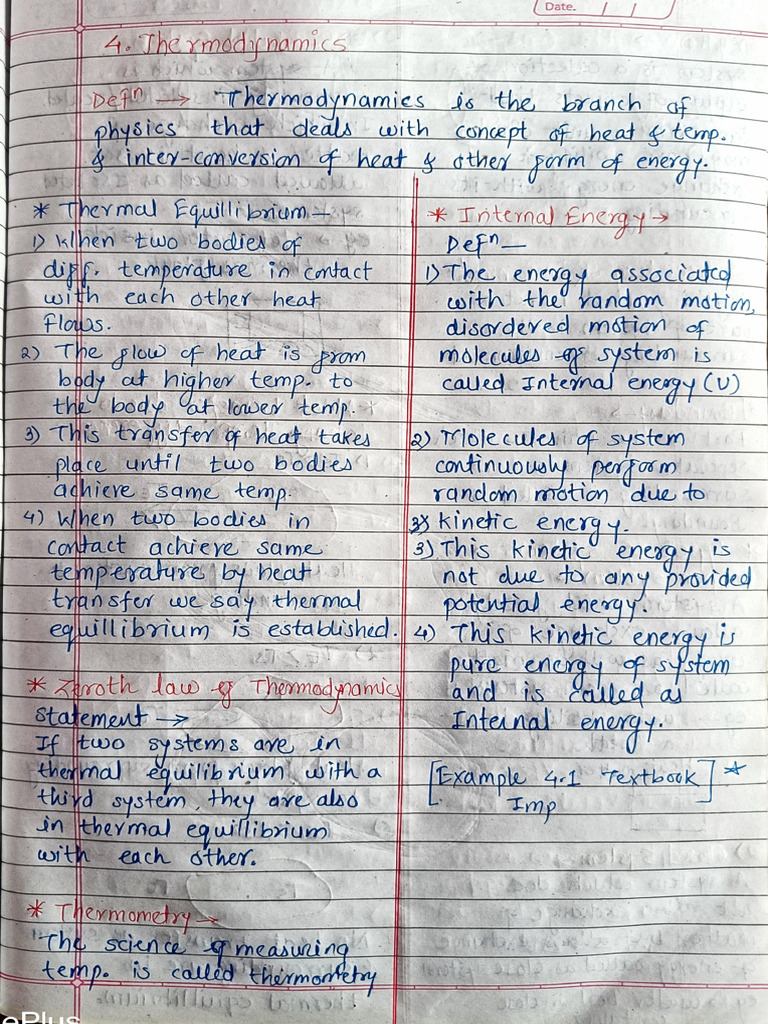 Date.
4. Thermodynamics
Defⁿ → Thermodynamics is the branch of
physics that deals with concept of heat & temp.
& inter-conversion of heat & other form of energy.
* Thermal Equillibrium →
1) When two bodies of
diff. temperature in contact
with each other heat
flows.
2) The flow of heat is from
body at higher temp. to
the body at lower temp.
3) This transfer of heat takes
place until two bodies
achieve same temp.
4) When two bodies in
contact achieve same
temperature by heat
transfer we say thermal
equillibrium is established.
* Zeroth law of Thermodynamics
Statement →
If two systems are in
thermal equilibrium with a
third system, they are also
in thermal equillibrium
with each other.
* Thermometry →
The science of measuring
temp. is called thermometry
* Internal Energy →
Defⁿ —
1) The energy associated
with the random motion,
disordered motion of
molecules of system is
called Internal energy (U)
2) Molecules of system
continuously perform
random motion due to
kinetic energy.
3) This kinetic energy is
not due to any provided
potential energy.
4) This kinetic energy is
pure energy of system
and is called as
Internal energy.
[Example 4.1 Textbook] *
Imp
ePlus